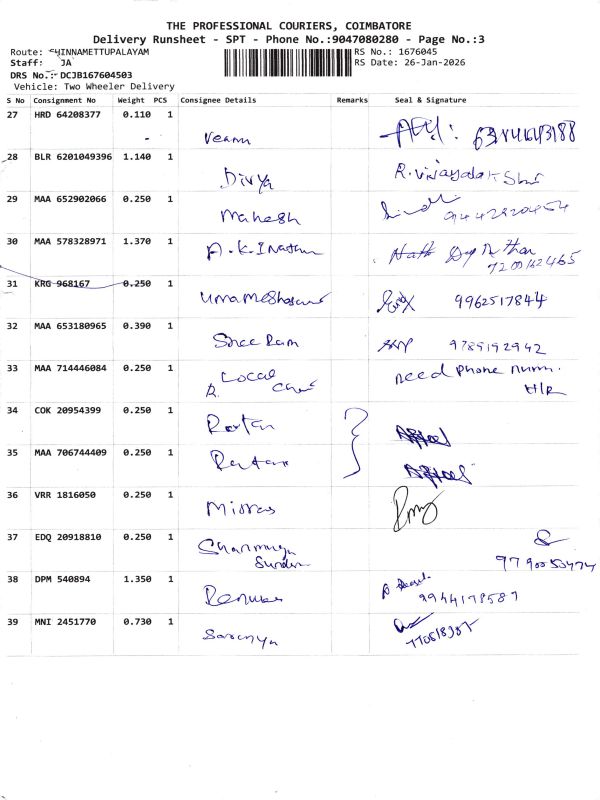 THE PROFESSIONAL COURIERS, COIMBATORE
Delivery Runsheet - SPT - Phone No.:9047080280 - Page No.:3
Route: CHINNAMETTUPALAYAM
RS No.: 1676045
Staff: JA
RS Date: 26-Jan-2026
DRS No.: DCJB167604503
Vehicle: Two Wheeler Delivery
S No Consignment No Weight PCS Consignee Details Remarks Seal & Signature
27 HRD 64208377 0.110 1
28 BLR 6201049396 1.140 1 Divya
29 MAA 652902066 0.250 1 Mahesh
30 MAA 578328971 1.370 1
7200162465
31 KRG 968167 0.250 1 9962517844
32 MAA 653180965 0.390 1 Sree Ram 9789192942
33 MAA 714446084 0.250 1 Local need phone num.
34 COK 20954399 0.250 1 Ratan
35 MAA 706744409 0.250 1 Ratan
36 VRR 1816050 0.250 1
37 EDQ 20918810 0.250 1 Shanmuga
Sundar
38 DPM 540894 1.350 1 Renuka
9944178587
39 MNI 2451770 0.730 1 Saranya